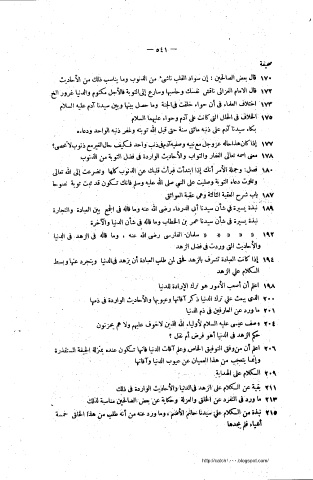 — ٥٤١ —
صحيفة
١٧٠ قال بعض الصالحين : إن سواد القلب ناشئ من الذنوب وما يناسب ذلك من الأحاديث
١٧٢ قال الامام الغزالى ناقش نفسك وحاسبها وسارع إلى التوبة فالأجل مكتوم والدنيا غرور الخ
١٧٣ اختلاف العلماء فى أن حواء خلقت فى الجنة وما حصل بينها وبين سيدنا آدم عليه السلام
١٧٥ الخلاف فى الحلل التى كانت على آدم وحواء عليهما السلام
بكاء سيدنا آدم على ذنبه مائتى سنة حتى قبل الله توبته وغفر ذنبه الواحد ودعاء.
١٧٧ إذا كان هذا حاله عز وجل مع نبيه وصفيه آدم فى ذنب واحد فكيف حال الغير مع ذنوب لا تحصى؟
١٧٨ معنى اسمه تعالى الغفار والتواب والأحاديث الواردة فى فضل التوبة من الذنوب
١٨٠ فصل: وجملة الأمر أنك إذا ابتدأت فبرأت قلبك عن الذنوب كلها وتضرعت إلى الله تعالى
وتلوت دعاء التوبة وصليت على النبى صلى الله عليه وسلم فانك تكون قد تبت توبة نصوحا
١٨٧ باب شرح العقبة الثالثة وهى عقبة العوائق
١٨٩ نبذة يسيرة فى شأن سيدنا أبى الدرداء رضى الله عنه وما قاله فى الجمع بين العبادة والتجارة
نبذة يسيرة فى شأن سيدنا عمر بن الخطاب وما قاله فى شأن الدنيا والآخرة
١٩٢ » » » » سلمان الفارسى رضى الله عنه ، وما قاله فى الزهد فى الدنيا
والأحاديث التى وردت فى فضل الزهد
١٩٤ إذا كانت العبادة تشرف بالزهد فحق لمن طلب العبادة أن يزهد فى الدنيا ويتجرد عنها وبسط
الكلام على الزهد
١٩٨ اعلم أن أصعب الأمور هو ترك الإرادة للدنيا
٢٠٠ الذى يبعث على ترك الدنيا ذكر آفاتها وعيوبها والأحاديث الواردة فى ذمها
٢٠١ ما ورد عن العارفين فى ذم الدنيا
٢٠٤ وصف عيسى عليه السلام لأولياء الله الذين لا خوف عليهم ولا هم يحزنون
حكم الزهد فى الدنيا أهو فرض أم نفل ؟
٢٠٦ اعلم أن من وفق التوفيق الخاص وعلم آفات الدنيا فانها تكون عنده بمنزلة الجيفة المستقذرة
وإنما يتعجب من هذا العميان عن عيوب الدنيا وآفاتها
٢٠٩ الكلام على الهداية
٢١١ بقية عن الكلام على الزهد فى الدنيا والأحاديث الواردة فى ذلك
٢١٣ ما ورد فى التفرد عن الخلق والعزلة وحكاية عن بعض الصالحين مناسبة لذلك
٢١٥ نبذة من الكلام على سيدنا حاتم الأصم ، وما ورد عنه من أنه طلب من هذا الخلق خمسة
أشياء فلم يجدها